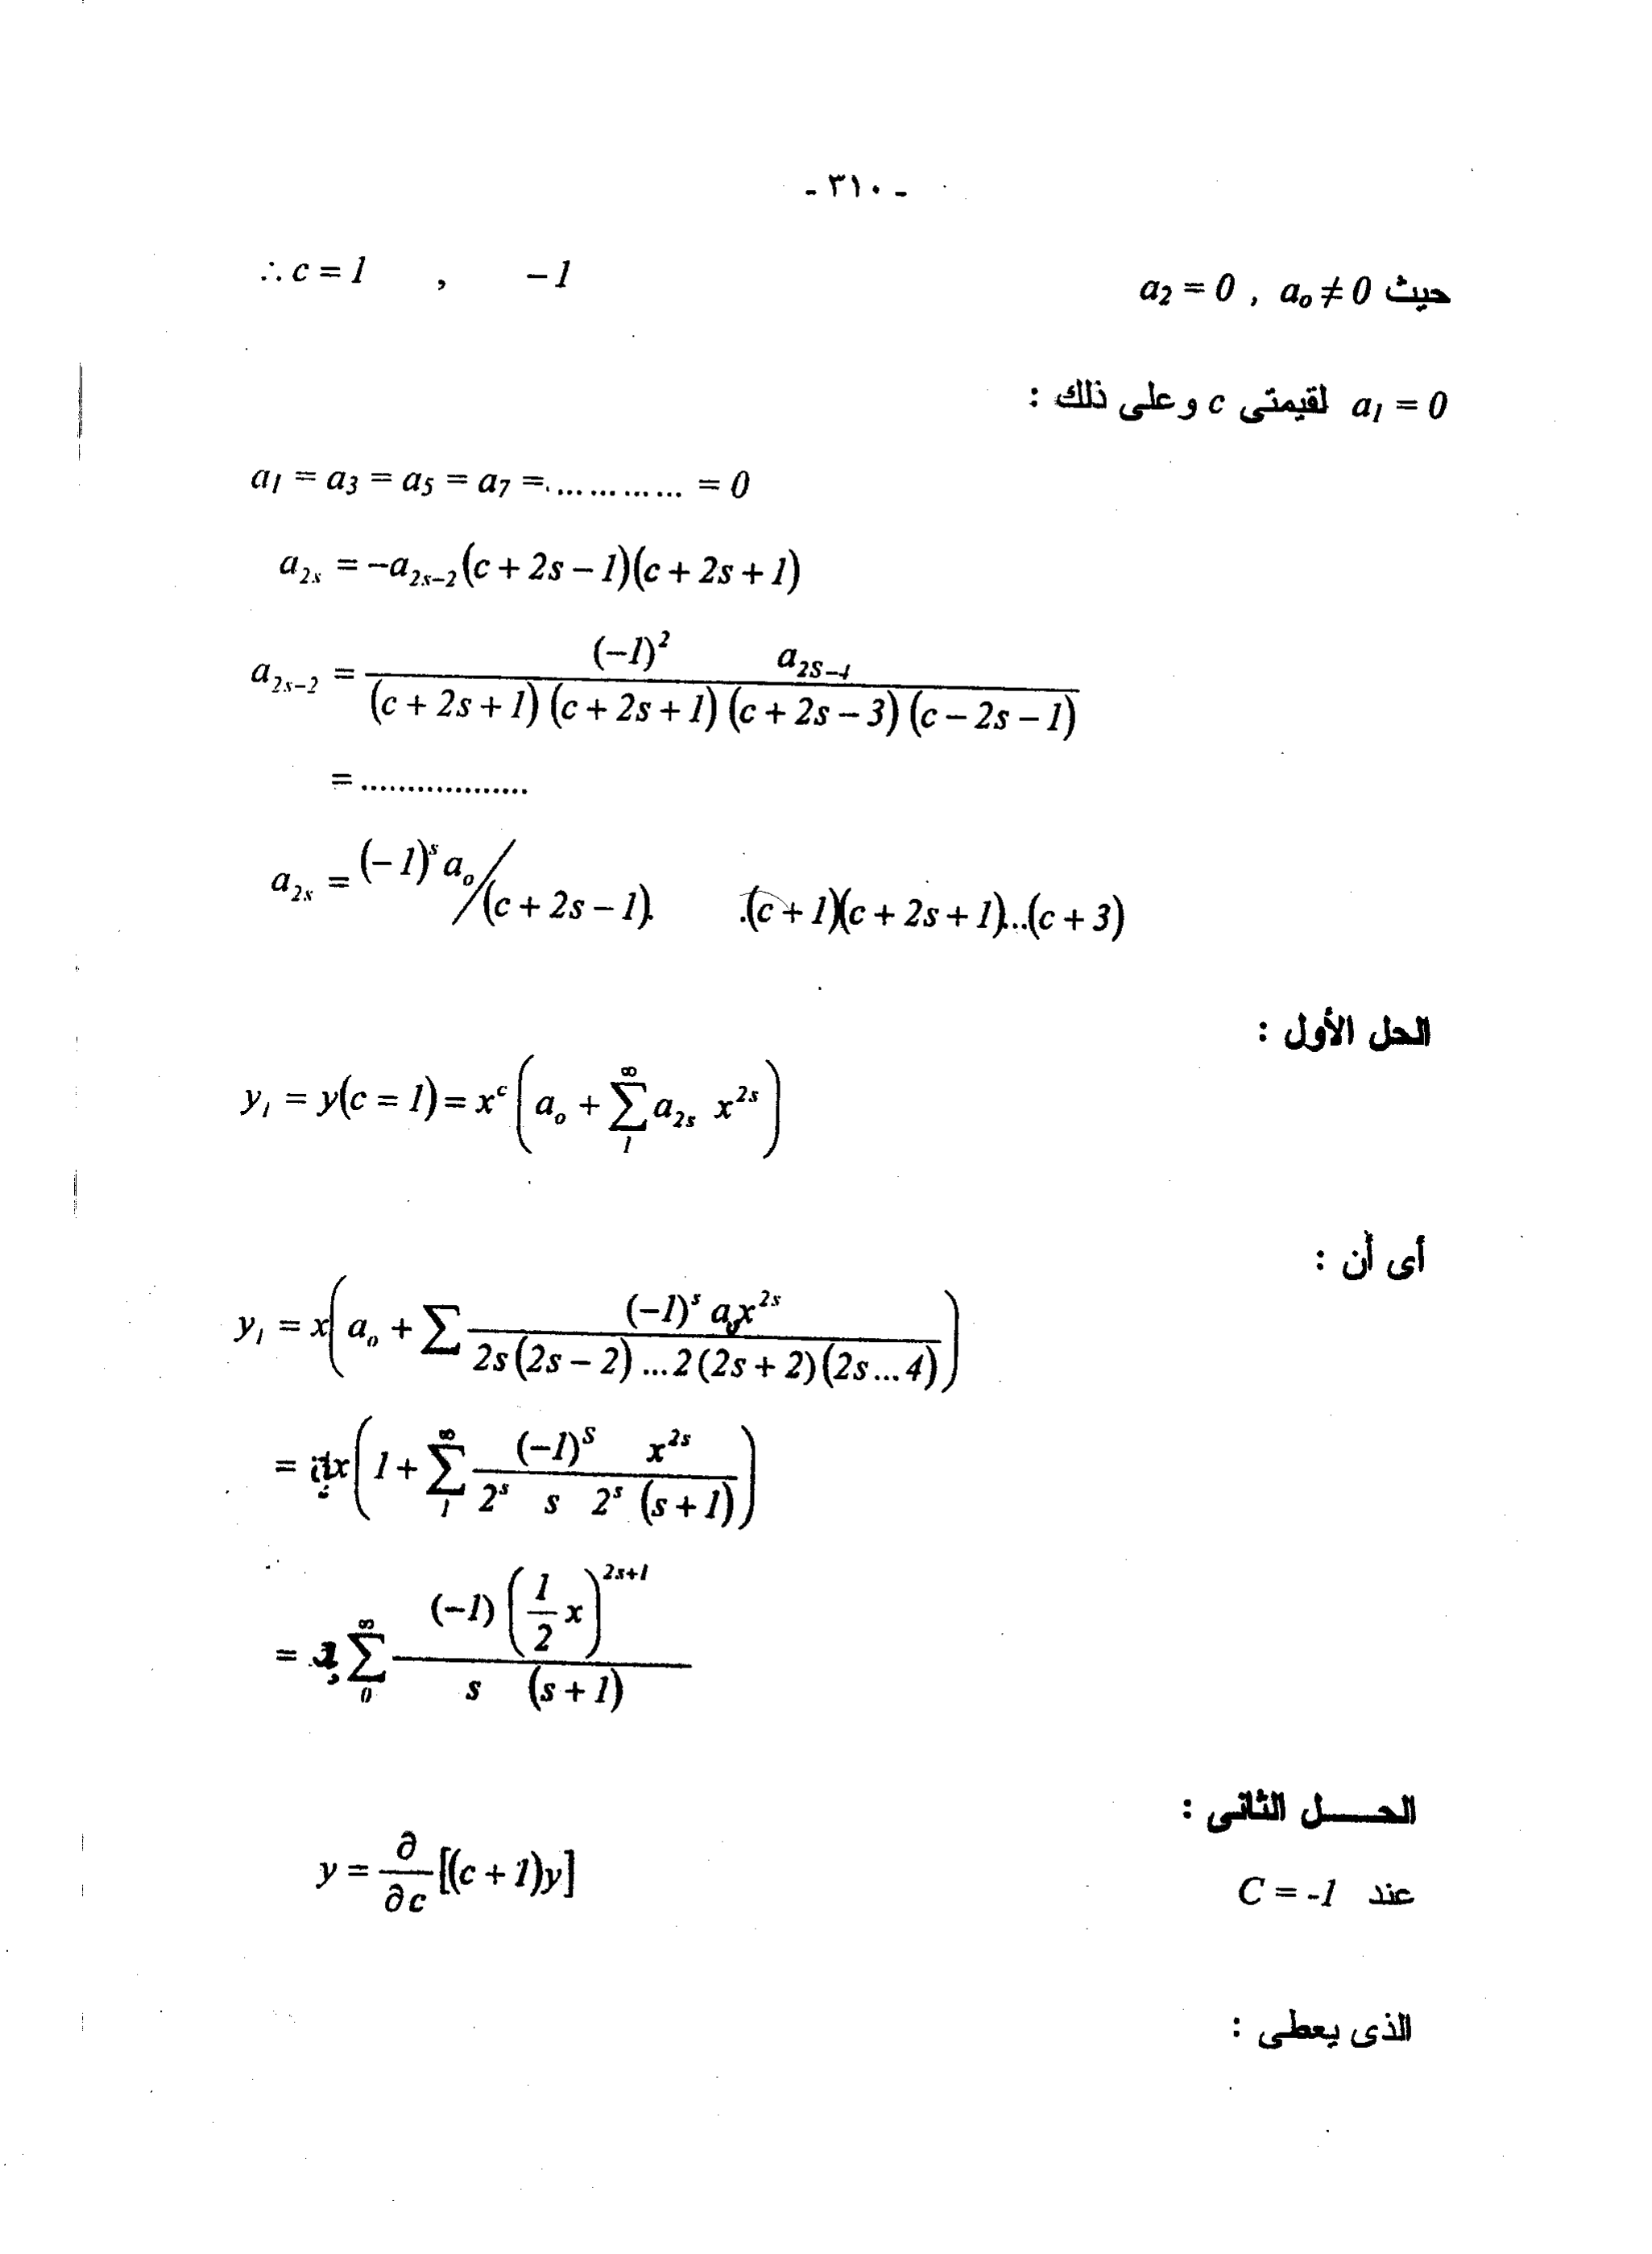 - ٣١٠ -
حيث a₀ ≠ 0 , a₂ = 0
∴ c = 1 , −1
a₁ = 0 لقيمتى c وعلى ذلك :
a₁ = a₃ = a₅ = a₇ = ............ = 0
a₂ₛ = −a₂ₛ₋₂(c + 2s − 1)(c + 2s + 1)
a₂ₛ₋₂ = (−1)² a₂S₋₄ / (c + 2s + 1)(c + 2s + 1)(c + 2s − 3)(c − 2s − 1)
= ..................
a₂ₛ = (−1)ˢ a₀ / (c + 2s − 1). .(c + 1)(c + 2s + 1)...(c + 3)
الحل الأول :
y₁ = y(c = 1) = xᶜ (a₀ + ∑₁^∞ a₂ₛ x²ˢ)
أى أن :
y₁ = x(a₀ + ∑ (−1)ˢ a₀x²ˢ / 2s(2s − 2)...2(2s + 2)(2s...4))
= x(1 + ∑₁^∞ (−1)^S x²ˢ / 2ˢ s 2ˢ (s + 1))
= ∑₀^∞ (−1)(1/2 x)²ˢ⁺¹ / s (s + 1)
الحـــــل الثانى :
عند C = -1
y = ∂/∂c [(c + 1)y]
الذى يعطى :